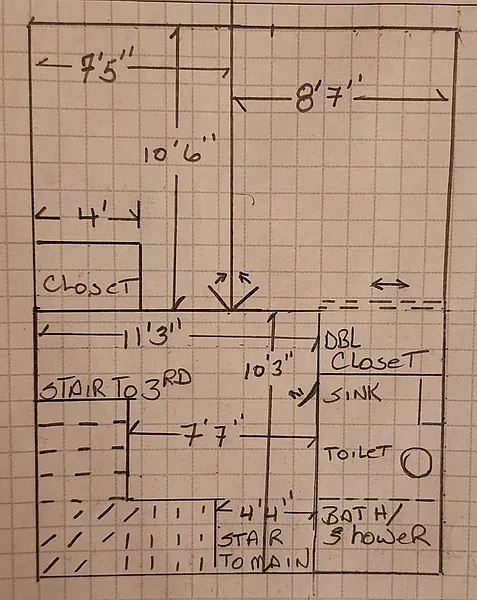 7'5"
8'7"
10'6"
4'
CLOSET
11'3"
DBL
CLOSET
10'3"
STAIR TO 3RD
SINK
7'7"
TOILET
4'4"
BATH/
SHOWER
STAIR
TO MAIN